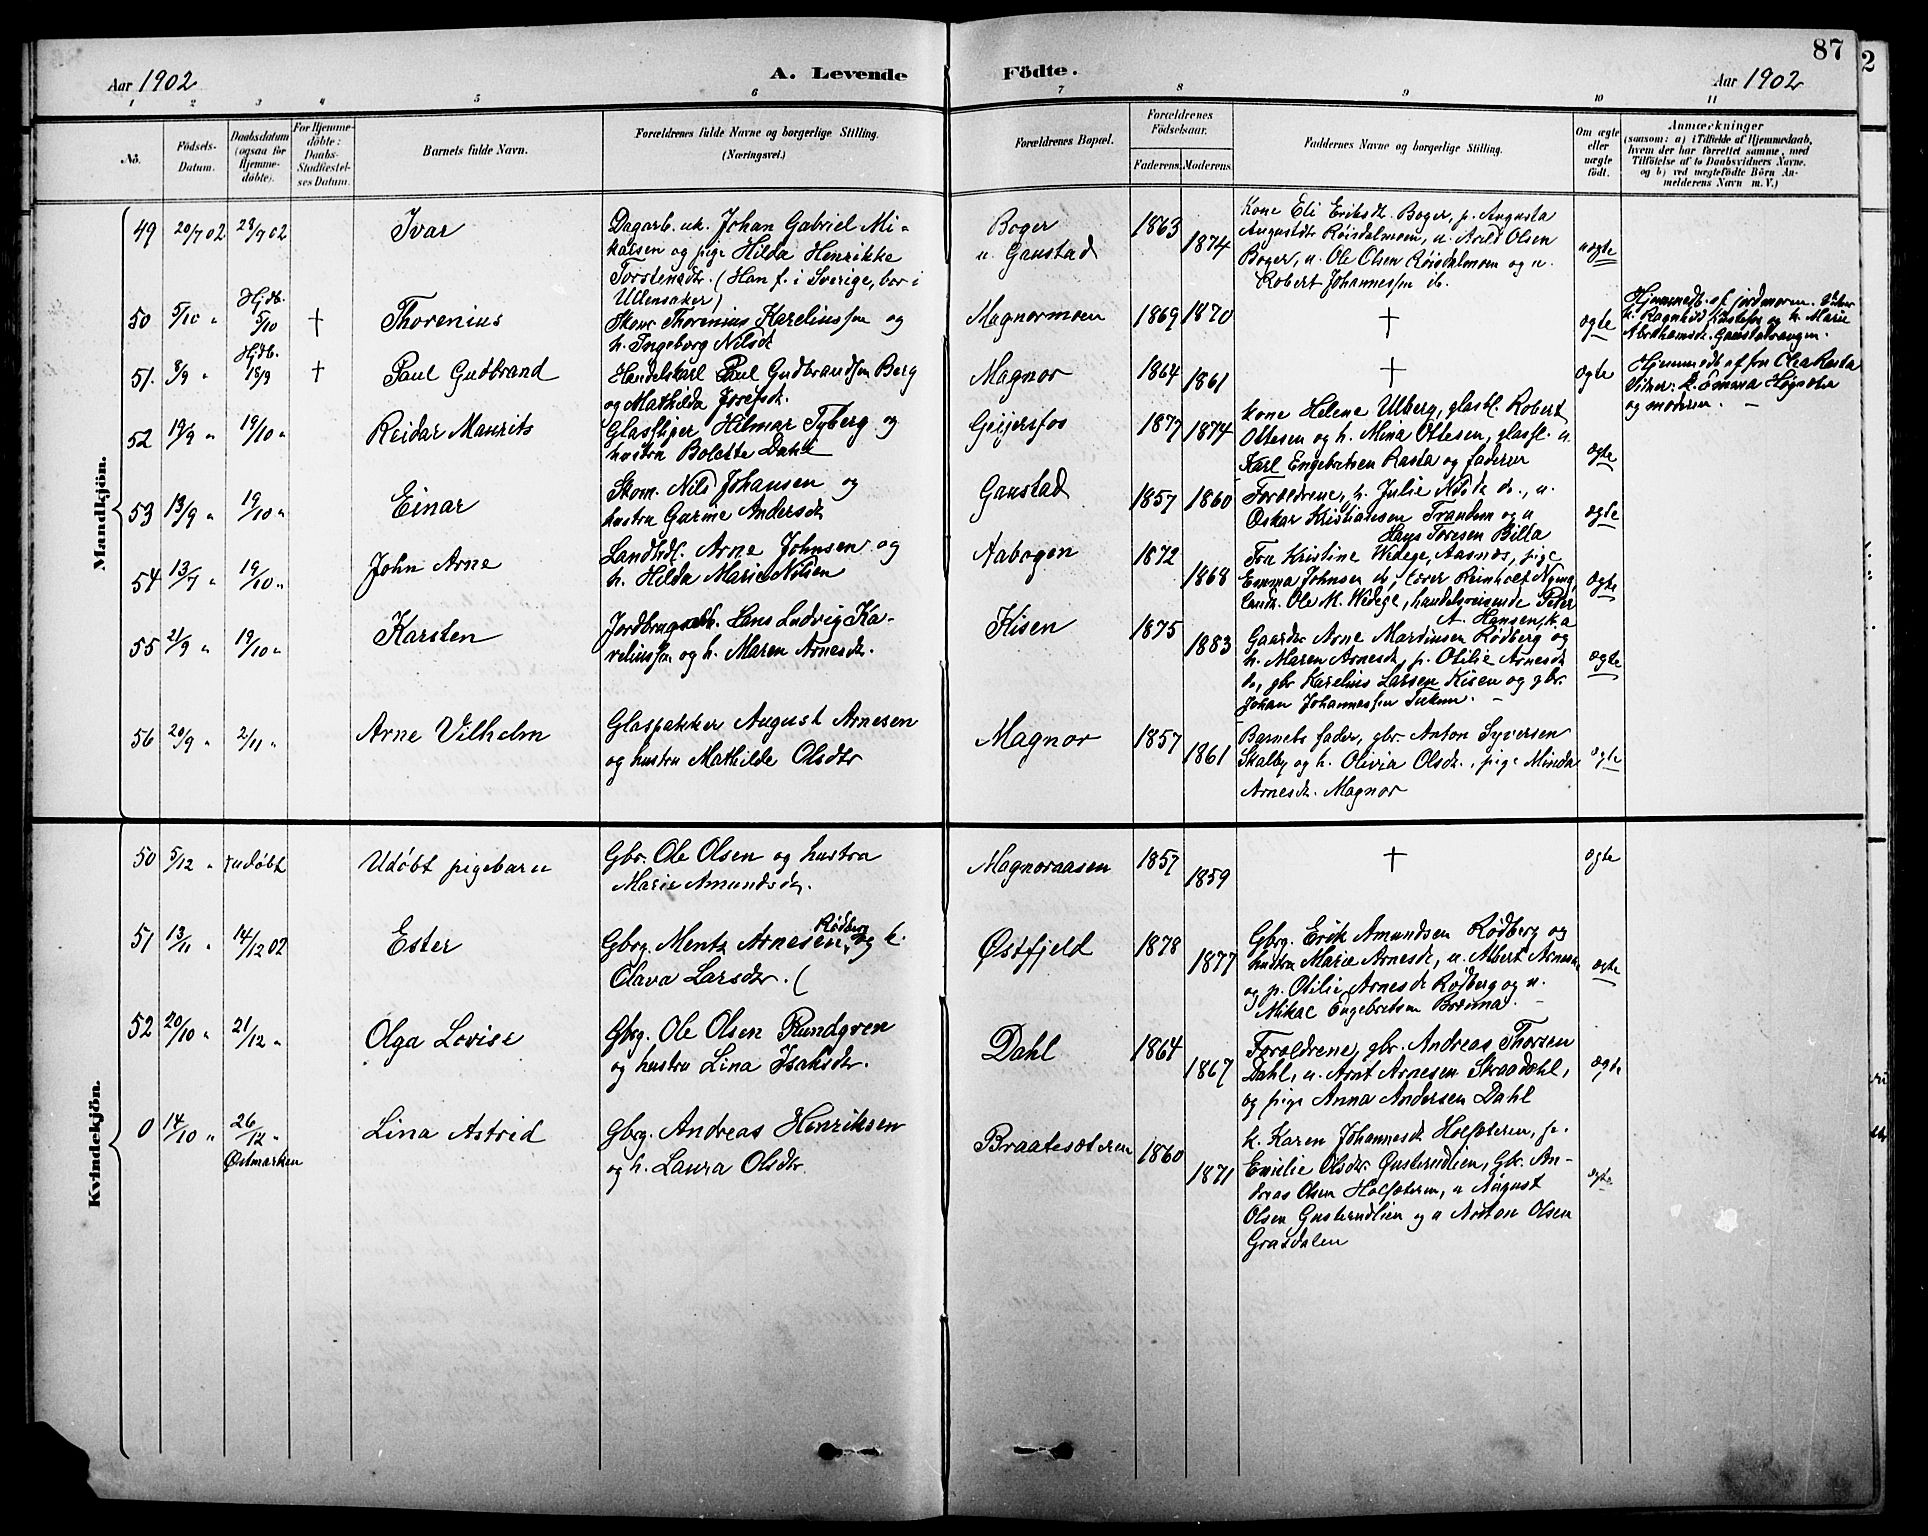 87
Aar 1902
A. Levende
Födte.
Aar 1902
1 2 3 4 5 6 7 8 9 10 11
No.
Födsels-
Datum.
Daabsdatum
(ogsaa for
Hjemme-
döbte).
For Hjemme-
döbte:
Daabs-
Stadfæstel-
ses Datum.
Barnets fulde Navn.
Forældrenes fulde Navne og borgerlige Stilling.
(Næringsvei.)
Forældrenes Bopæl.
Forældrenes
Födselsaar.
Faderens. Moderens.
Faddernes Navne og borgerlige Stilling.
Om ægte
eller
uægte
födt.
Anmærkninger
(saasom: a) i Tilfælde af Hjemmedaab,
hvem der har forrettet samme, med
Tilföielse af to Daabsvidners Navne.
og b) ved uægtefödte Börn An-
melderens Navn m. V.)
Mandkjön.
49 20/7 02 28/7 02 Ivar
Dagarb. uk. Johan Gabriel Mi-
kalsen og pige Hilda Henrikke
Torstensdr. (Han f. i Sverige, bor i
Ullensaker)
Boger
u. Gaustad
1863 1874
Kone Eli Eriksdt. Boger, p. Augusta
Augustdtr Röisdalmoen, u. Arild Olsen
Boger, u. Ole Olsen Röisdalmoen og u.
Robert Johannessen ib.
uægte
50 5/10 " Hjdb. 5/10 † Thorenius
Skom Thorenius Kareliussen og
h. Ingeborg Nilsdt
Magnormoen 1869 1870 † ægte
Hjemmedb. af jordmoren. Vidner
h. Ragnhild og h. Marie
Abrahamsdt. Gaustadvangen.
51. 8/9 " Hjdb. 18/9 † Paul Gudbrand
Handelskarl Paul Gudbrandsen Berg
og Mathilda Josefsdt.
Magnor 1864 1861 † ægte
Hjemmedb. af fru Olea Rasta
Vidner: Emma Högnolen
og moderen. –
52 19/9 " 19/10 " Reidar Maurits
Glassliper Hilmar Tyberg og
hustru Bolette Dahl
Geijersfos 1877 1874
Kone Helene Ulberg, glasbl. Robert
Ottesen og h. Mina Ottesen, glasbl. u.
Karl Engebretsen Rasta og faderen
ægte
53 13/9 " 19/10 " Einar
Skom. Nils Johansen og
hustru Gurine Andersdt
Gaustad 1857 1860
Forældrene, h. Julie Nilsdt do., u.
Oskar Kristiansen Trandem og u
Hans Toresen Billa
ægte
54 13/7 " 19/10 " John Arne
Landhdl. Arne Johnsen og
h. Hilda Marie Nilsen
Aabogen 1872 1868
Fru Kristine Wedege, Aasnæs, pige
Emma Johnsen do, lærer Reinholt Nyeng
landh. Ole M. Wedege, handelsreisende Peter
A. Hansen, K.a
ægte
55 21/9 " 19/10 " Karsten
Jordbrugsarb. Hans Ludvig Ka-
reliussen og h. Maren Arnesdt.
Kisen 1875 1883
Gaardbr Arne Mardinsen Rödberg og
h. Maren Arnesdt, p. Otilie Arnesdt
do, gbr Karelius Larsen Kisen og gbr.
Johan Johannessen Tukun. –
ægte
56 20/9 " 2/11 " Arne Vilhelm
Glaspakker August Arnesen
og hustru Mathilde Olsdtr
Magnor 1857 1861
Barnets fader, gbr. Anton Syversen
Skalby og h. Olivia Olsdt., pige Minda
Arnesdt. Magnor
ægte
Kvindekjön.
50 5/12 " udöbt Udöbt pigebarn
Gbr. Ole Olsen og hustru
Marie Amundsdr.
Magnoraasen 1857 1859 † ægte
51 13/11 " 14/12 02 Ester
Gbrg. Mentz Arnesen Rödberg, og h.
Olava Larsdtr. (
Østfjeld 1878 1877
Gbrg. Erik Amundsen Rödberg og
hustru Marie Arnesdt, u. Albert Arnesen
og p. Otilie Arnesdt Rödberg og u.
Mikal Engebretsen Brenna. –
ægte
52 20/10 " 21/12 " Olga Lovise
Gbrg. Ole Olsen Rundgren
og hustru Lina Isaksdr.
Dahl 1864 1867
Forældrene, gbr. Andreas Thorsen
Dahl, u. Arnt Arnesen Skraadahl,
og pige Anna Andersen Dahl
ægte
0 14/10 " 26/12 " Østmarken Lina Astrid
Gbrg. Andreas Henriksen
og h. Laura Olsdtr.
Braatesæteren 1860 1871
k. Karen Johannesdt Holsæteren, p.
Emilie Olsdtr. Gusterudlien, Gbr. An-
dreas Olsen Holsæteren, u August
Olsen Gusterudlien og u Anton Olsen
Grasdalen
ægte